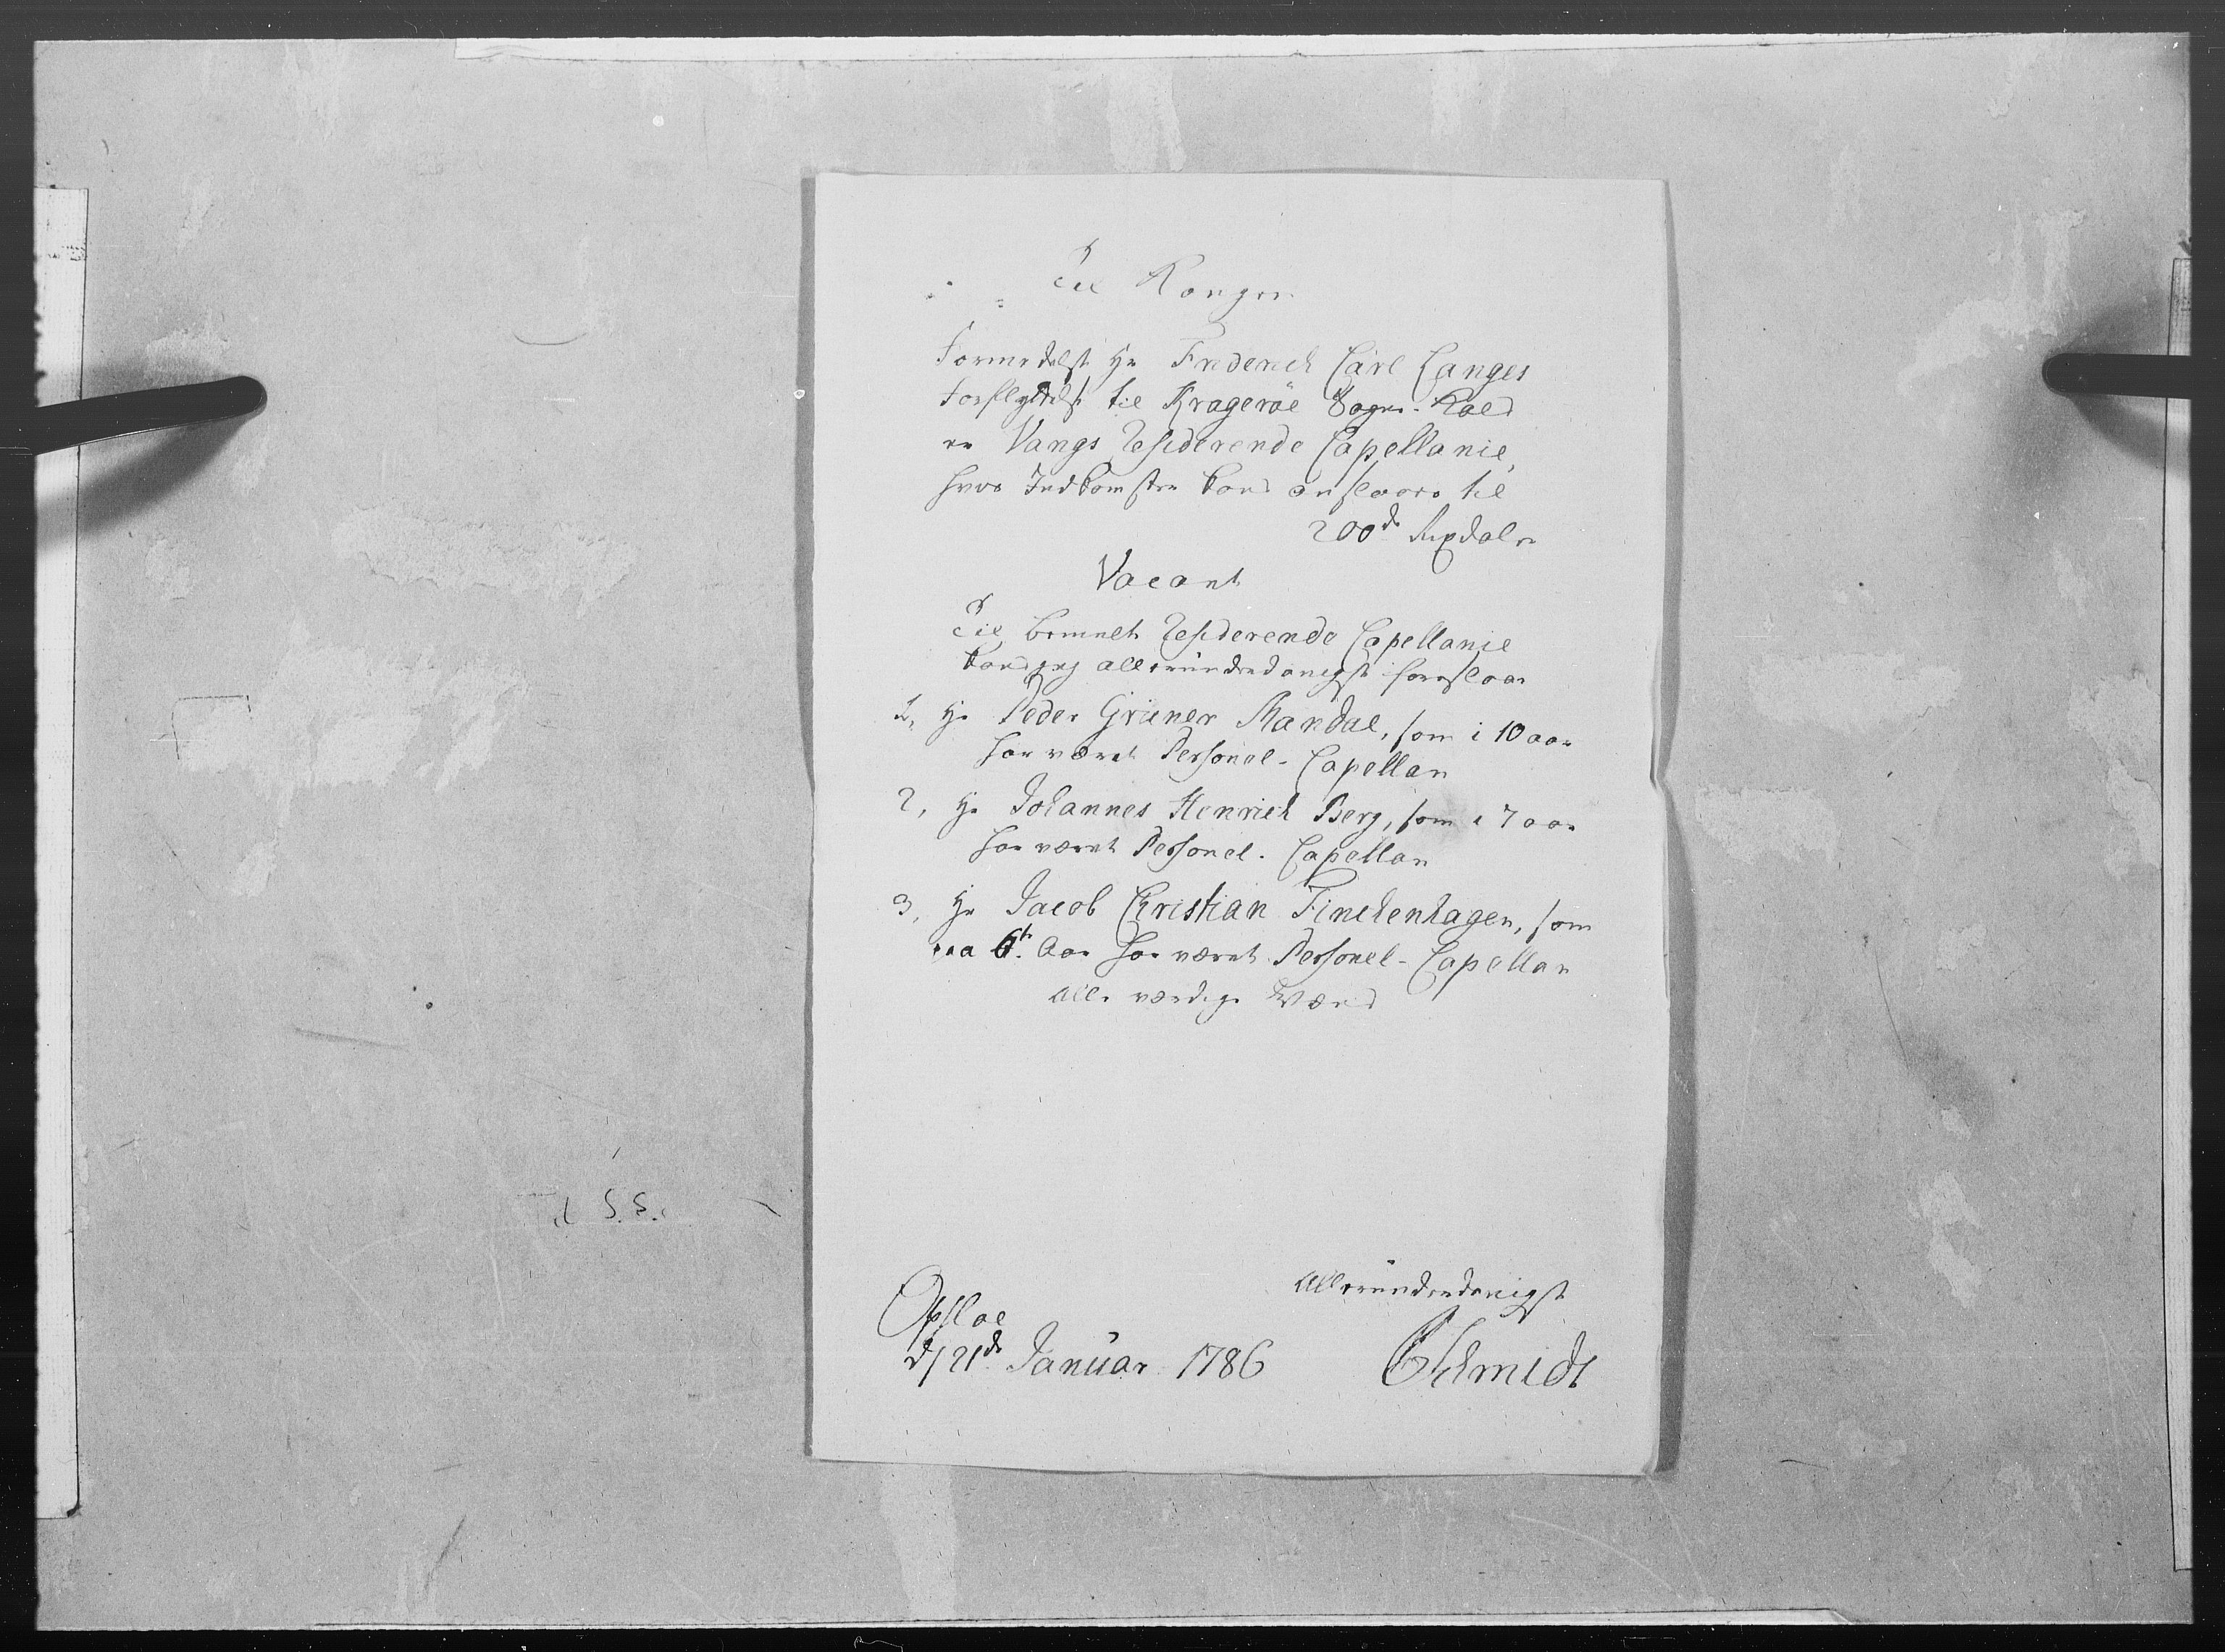 Til Kongen
Formedelst Hr Friderich Carl Langes
Forflyttelse til Krageröe Sogne-Kald
er Vangs Residerende Capellanie,
hvis Indkomster kand anslaaes til
200de Rixdaler
Vacant
Til bemelte Residerende Capellanie
kand jeg allerunderdanigst foreslaae
1, Hr Peder Grüner Mandal, som i 10 aar
har været Personel-Capellan
2, Hr Johannes Henrich Berg, som i 7 aar
har været Personel-Capellan
3, Hr Jacob Christian Finckenhagen, som
paa 6te Aar har været Personel-Capellan
Alle værdige Mænd
Allerunderdanigst
Opsloe
d/ 21de Januar 1786
CSchmidt